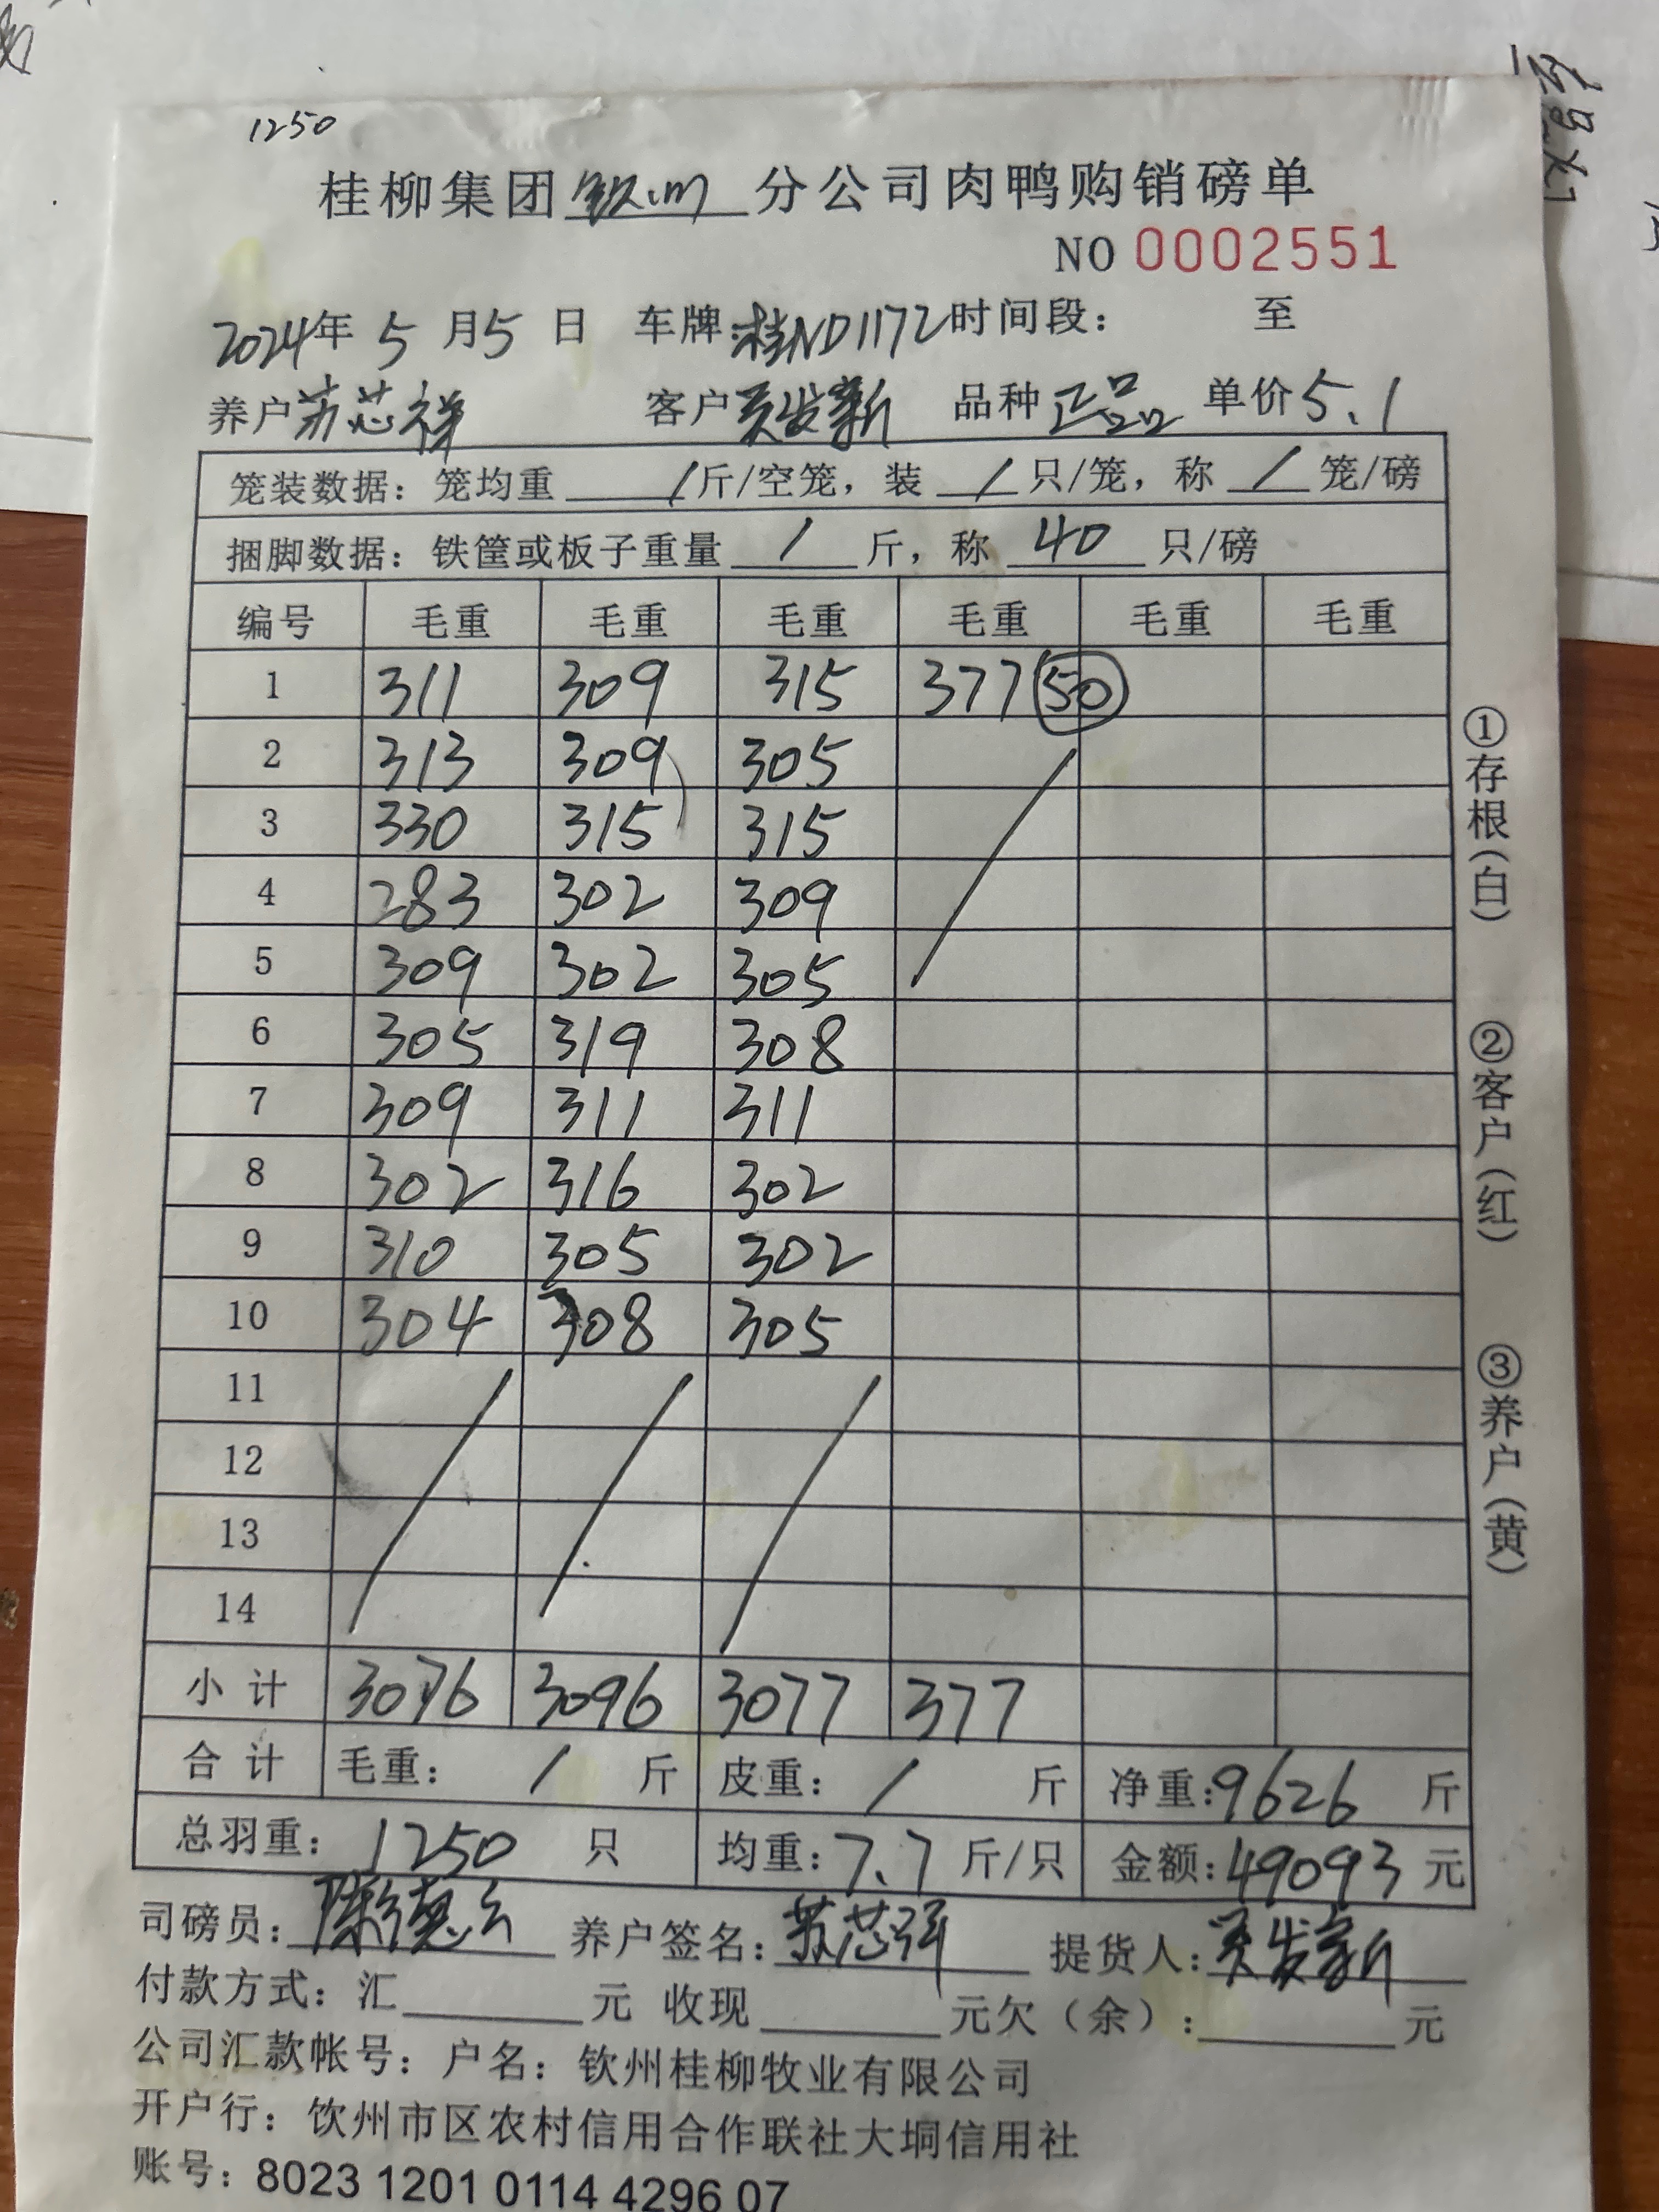 1250
桂柳集团钦州分公司肉鸭购销磅单
NO 0002551
2024年 5 月 5 日 车牌:桂ND1172 时间段: 至
养户 苏芯祥 客户 吴发新 品种 正品 单价 5.1
笼装数据: 笼均重 / 斤/空笼, 装 / 只/笼, 称 / 笼/磅
捆脚数据: 铁筐或板子重量 / 斤, 称 40 只/磅
编号 毛重 毛重 毛重 毛重 毛重 毛重
1 311 309 315 377 50
2 313 309 305
3 330 315 315
4 283 302 309
5 309 302 305
6 305 319 308
7 309 311 311
8 302 316 302
9 310 305 302
10 304 308 305
11
12
13
14
小计 3076 3096 3077 377
合计 毛重: / 斤 皮重: / 斤 净重:9626 斤
总羽重: 1250 只 均重:7.7 斤/只 金额:49093 元
司磅员: 陈德云 养户签名: 苏芯祥 提货人: 吴发新
付款方式: 汇 元 收现 元欠(余): 元
公司汇款帐号: 户名: 钦州桂柳牧业有限公司
开户行: 钦州市区农村信用合作联社大垌信用社
账号: 8023 1201 0114 4296 07
①存根(白)
②客户(红)
③养户(黄)